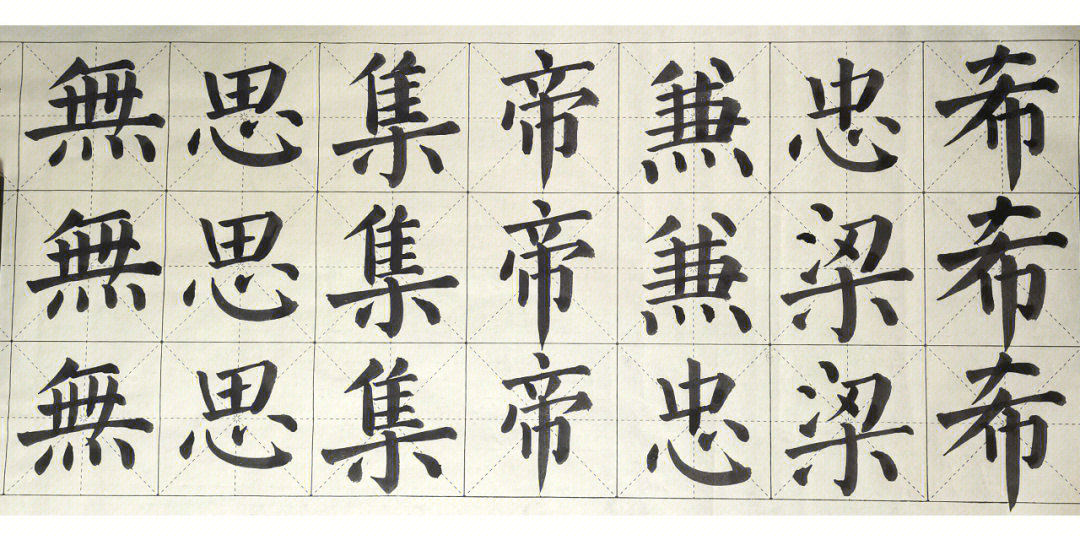 希希希
忠梁梁
兼兼忠
帝帝帝
集集集
思思思
無無無